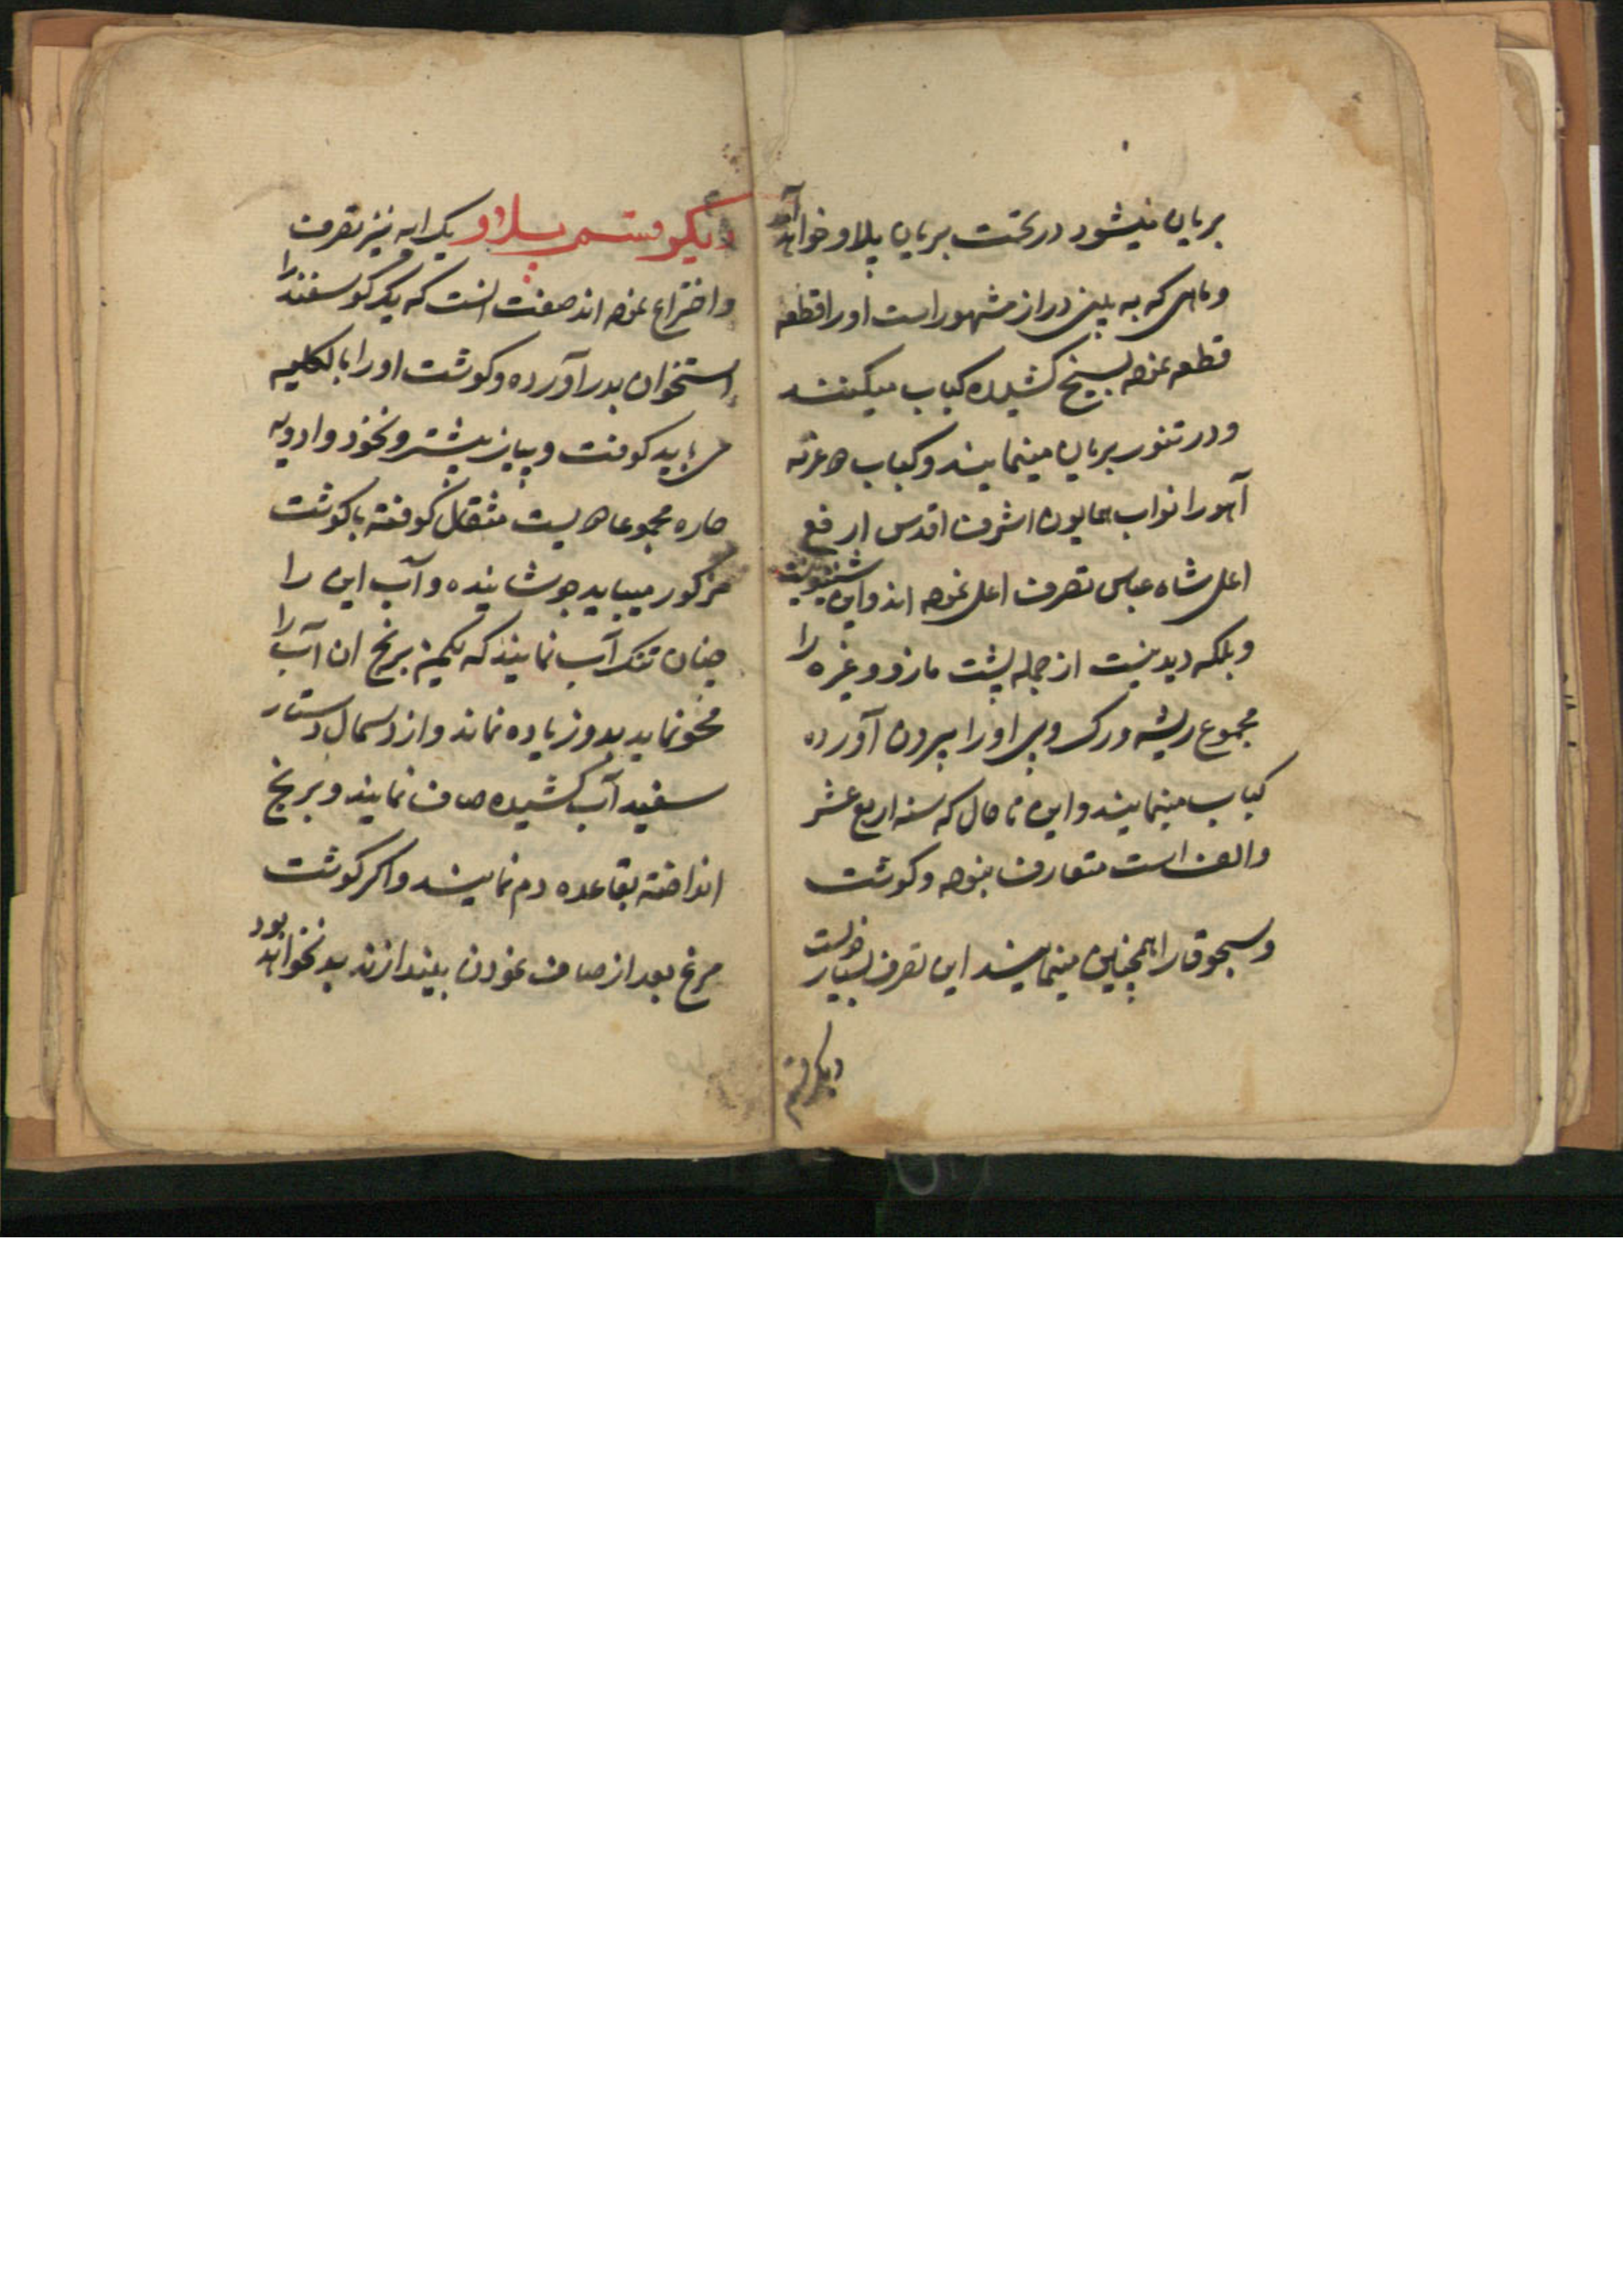 بریان میشود در تحت بریان پلاو خواهد آمد
و ماهی که به بینی دراز مشهور است او را قطعه
قطعه نموده بسیخ کشیده کباب میکنند
و در تنور بریان مینمایند و کباب
آهو را نواب همایون اشرف اقدس ارفع
اعلی شاه عباس تصرف اعلی نموده اند و این شنیدنیست
و بلکه دیدنیست از جمله پشت مازو و غیره را
مجموع ریشه و رک و پی او را بیرون آورده
کباب مینمایند و این تا حال که سنه اربع عشر
و الف است متعارف نبوده و کوشت
و سجوقا را همچنین مینمایند این تصرف بسیار خوبست
دیکر قسم
دیکر قسم پلاو یک رایه نیز تصرف
و اختراع نموده اند صفت انست که یک کوسفند را
استخوان بدر آورده و کوشت او را بالکلیه
می باید کوفت و پیاز بیشتر و نخود و ادویه
حاره مجموعا بیست مثقال کوفته با کوشت
مزکور میباید جوشانیده و آب این را
چنان تنک آب نمایند که یکمن برنج ان آب را
محو نماید بدو زیاده نماند و از دسمال دستار
سفید آب کشیده صاف نمایند و برنج
انداخته بقاعده دم نمایند و اکر کوشت
مرغ بعد از صاف نمودن بیندازند بد نخواهد بود